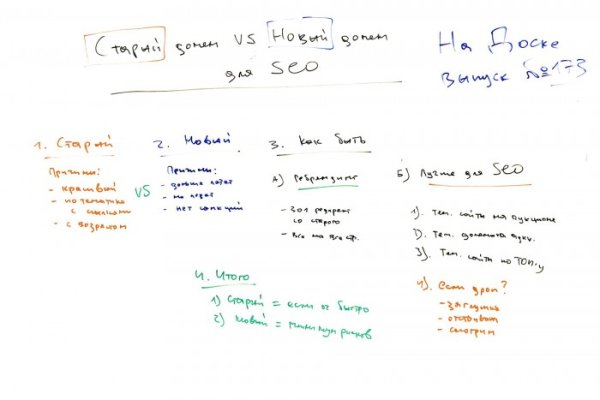 Старый домен VS Новый домен
для SEO
На Доске
выпуск №173
1. Старый
Причины:
- красивый
- по тематике
с ссылками
- с возрастом
VS
2. Новый
Причины:
- дольше
- нет санкций
3. Как быть
А) Ребрендинг
- 301 редирект
со старого
- Все на все стр.
Б) Лучше для SEO
1). Тем. сайты на аукционе
2). Тем. домены
3). Тем. сайты по ТОП-у
4). Если дроп?
- заглушка
- отстоять
- смотрим
4. Итого
1) Старый = если оч быстро
2) Новый = минимум рисков